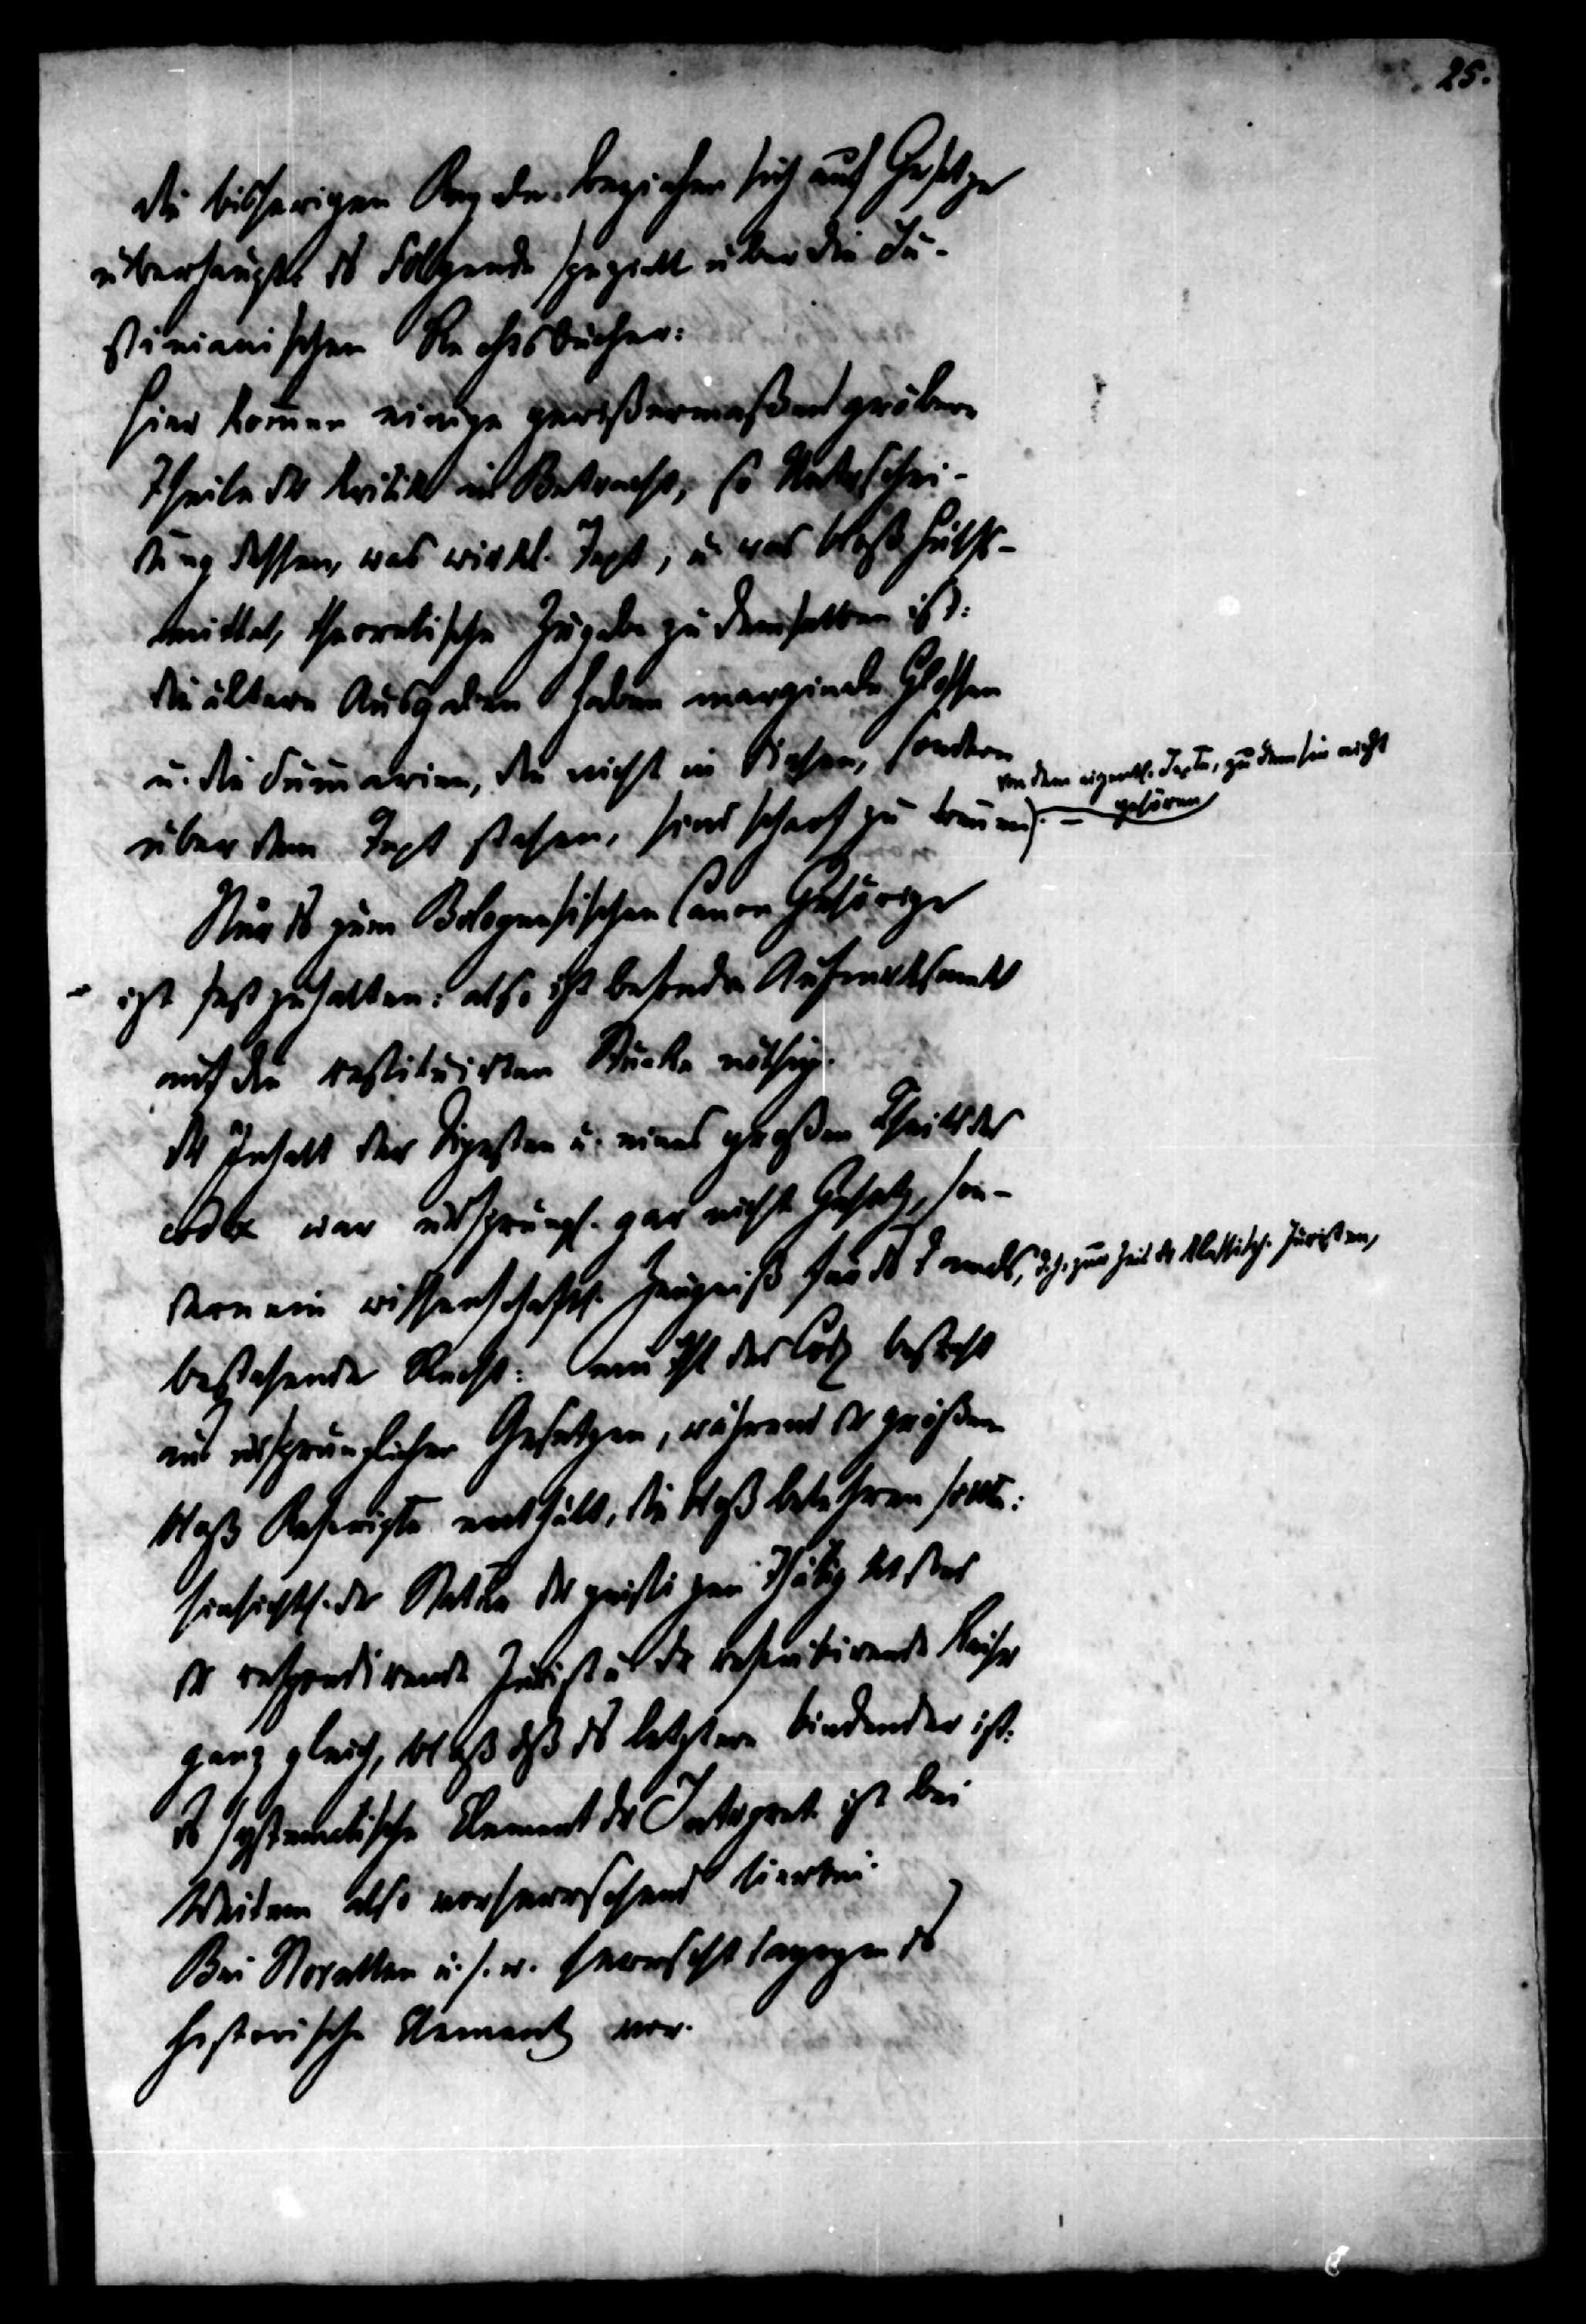 25.
die bisherigen Regeln beziehen sich auf Gesetze
überhaupt: ds Folgende speziell über die Ju-
stinianischen Rechtsbücher:
hier kommen einige gewißermaßen gröbere
Theile der Kritik in Betracht, so Unterschei-
dung dessen, was wirkl. Text, u. was bloß Hülfs-
mittel, theoretische Zugabe zu demselben ist:
die ältern Ausgaben haben marginale Glossen
u. die Summarien, die nicht in diesen, sondern
über dem Text stehen, sind scharf zu trennen). –
von dem eigentl. Texte, zu dem sie nicht
gehören
Nur ds zum Bolognesischen Canon Gehörige
ist festzuhalten: also ist besondre Aufmerksamk
auf die restituirten Stücke nöthig.
der Inhalt der Digesten u. eines großen Theils des
codex war ursprüngl. gar nicht Gesetz, son-
dern ein wissenschaftl. Zeugniß für ds damals, d. h. zur Zeit der klassisch. Juristen,
bestehende Recht: ein Thl des Codex besteht
aus ursprünglichen Gesetzen, während der größere
bloß Rescripte enthält, die bloß belehren sollte:
hinsichtl. der Natur der geistigen Thätigkt steht
der respondirende Jurist u. der rescribirende Kaiser
ganz gleich, bloß dß ds letztere bindender ist:
ds systematische Element der Interpret. ist bei
Weitem also vorherrschend hierbei.
Bei Novellen u. s. w. herrscht dagegen ds
historische Element vor.